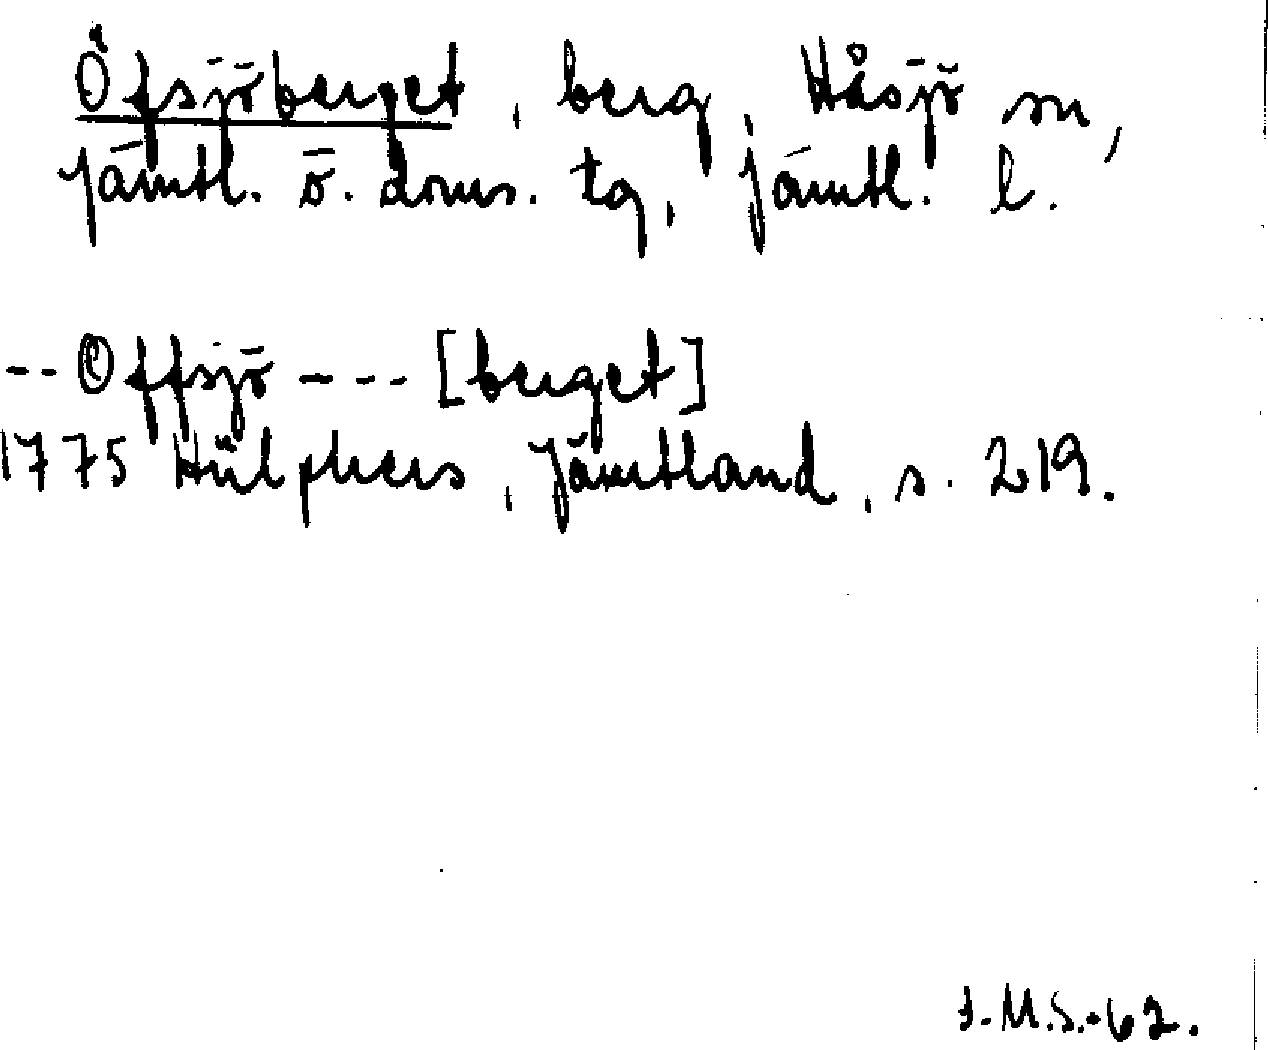 Öfsjöberget, berg, Håsjö sn,
Jämtl. ö. doms. tg, Jämtl. l.
--Öffsjö --- [berget]
1775 Hülphers, Jämtland, s. 219.
J.M.S.-62.